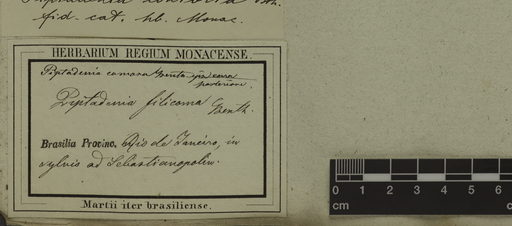 fid. cat. hb. Monac.
HERBARIUM REGIUM MONACENSE.
Piptadenia
posteriori.
Piptadenia filicoma Benth.
Brasilia Provinc. Rio de Janeiro, in
sylvis ad Sebastianopolin.
Martii iter brasiliense.
0 1 2 3 4 5 6
cm